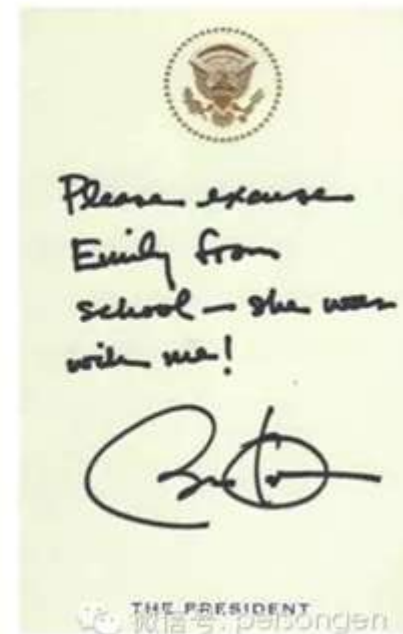 Please excuse
Emily from
school — she was
with me!
THE PRESIDENT
微信号: persongen